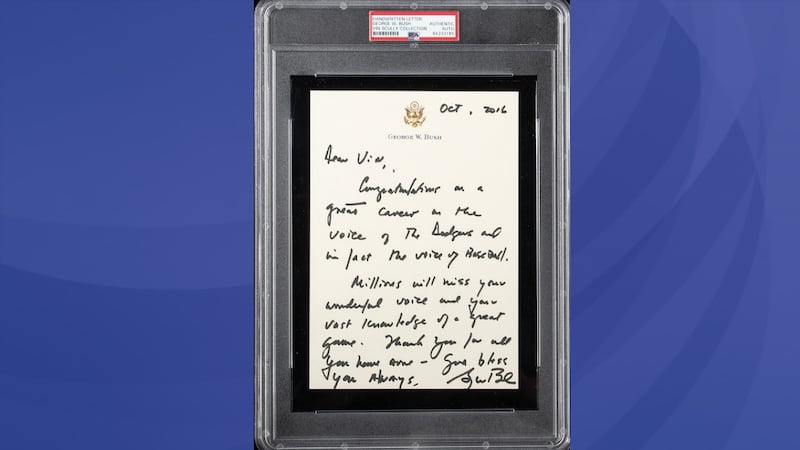 HANDWRITTEN LETTER
GEORGE W. BUSH AUTHENTIC
VIN SCULLY COLLECTION AUTO
PSA 84233185
Oct, 2016
GEORGE W. BUSH
Dear Vin,
Congratulations on a
great career as the
voice of The Dodgers and
in fact the voice of Baseball.
Millions will miss your
wonderful voice and your
vast knowledge of a great
game. Thank you for all
you have done - God bless
you always,